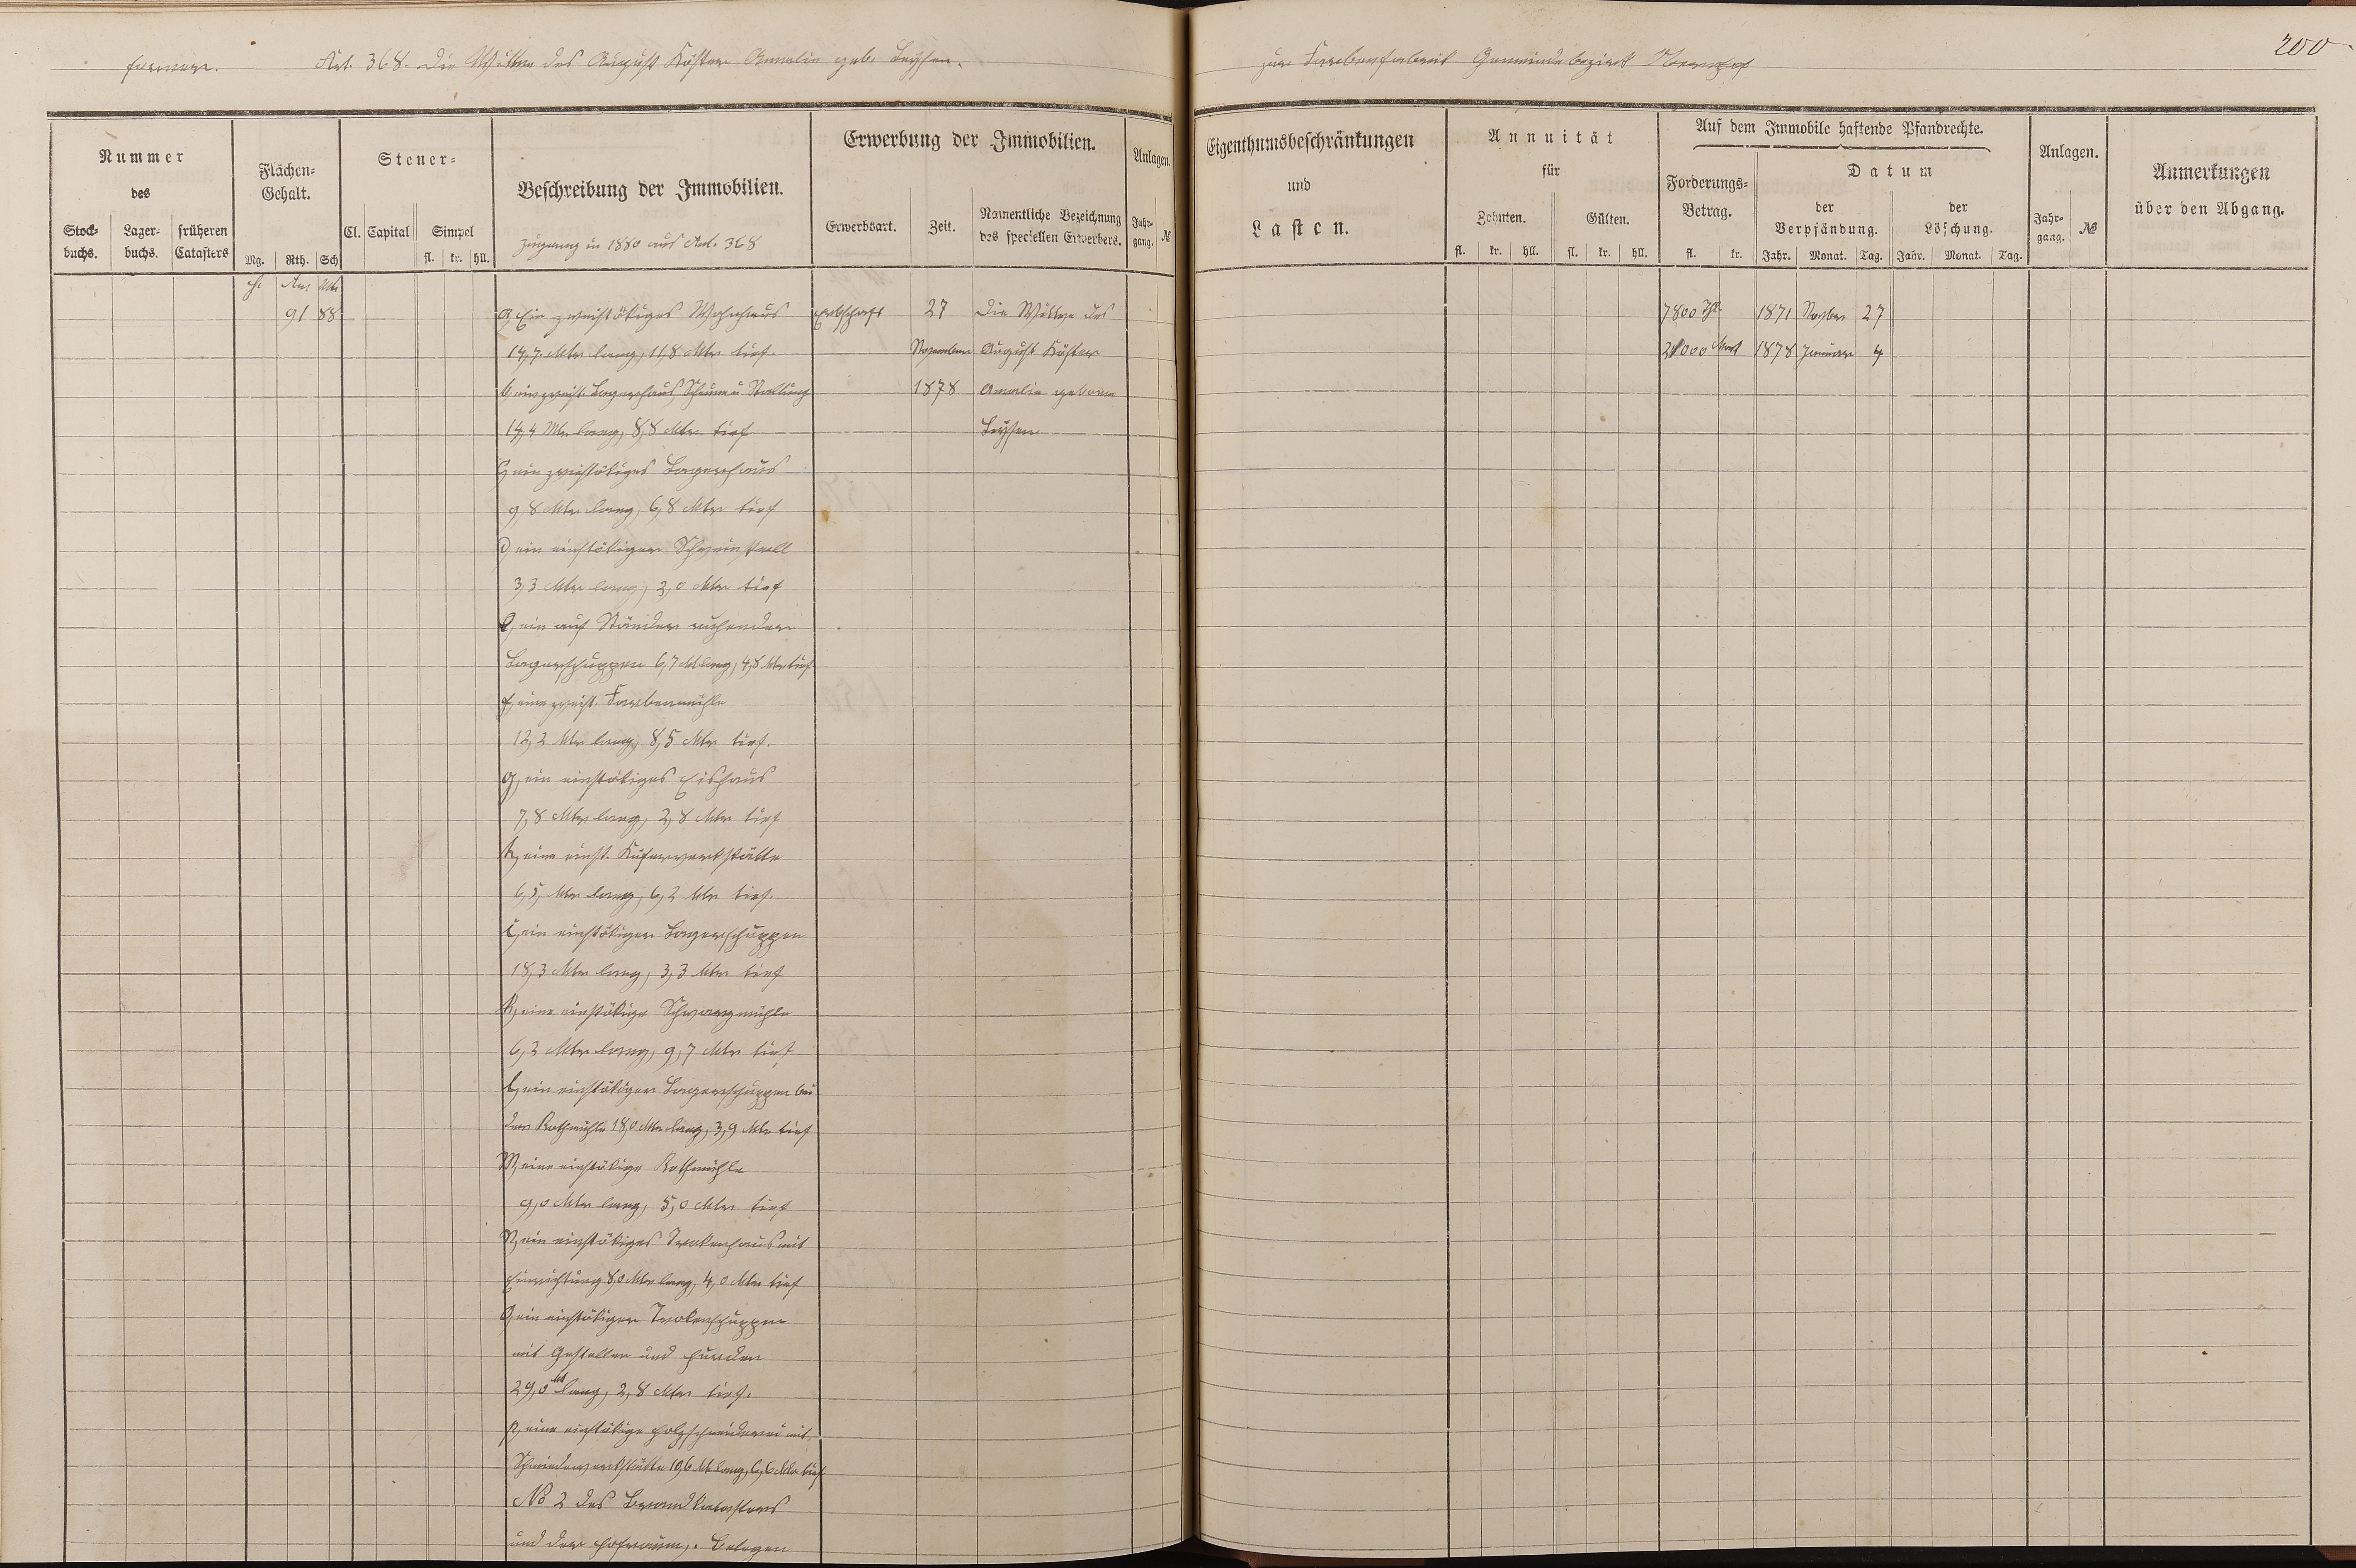 Art. 368. Die Wittwe des August Köster Amalie geb. Leyssen.
zur Farbenfabrik Gemeindebezirk
200
Nummer
des
Stock-
buchs.
Lager-
buchs.
früheren
Catasters
Flächen-
Gehalt.
Mg. Rth. Sch
Steuer-
Cl. Capital Simpel
fl. kr. hll.
Beschreibung der Immobilien.
Zugang in 1880 aus Art. 368
Erwerbung der Immobilien.
Erwerbsart. Zeit.
Namentliche Bezeichnung
des speciellen Erwerbers.
Anlagen.
Jahr-
gang. №
Eigenthumsbeschränkungen
und
Lasten.
Annuität
für
Zehnten. Gülten.
fl. kr. hll. fl. kr. hll.
Auf dem Immobile haftende Pfandrechte.
Forderungs-
Betrag.
fl. kr.
Datum
der
Verpfändung.
Jahr. Monat. Tag.
der
Löschung.
Jahr. Monat. Tag.
Anlagen.
Jahr-
gang. №
Anmerkungen
über den Abgang.
H. Ar Mtr
91 88 a, Ein zweistökiges Wohnhaus Erbschaft 27 Die Wittwe des 7800 Thl. 1871 Novber 27
14,7 Mtr lang, 11,8 Mtr tief. November August Köster 21000 Mark 1878 Januar 4
b, ein zweist. Lagerhaus, Scheune u Stallung 1878 Amalie geborne
14,4 Mtr lang, 8,8 Mtr tief Leyssen
c, ein zweistökiges Lagerhaus
9,8 Mtr lang, 6,8 Mtr tief
d, ein einstökiger Schweinstall
3,3 Mtr lang, 2,0 Mtr tief
e, ein auf Ständer ruhender
Lagerschuppen 6,7 M lang, 4,8 Mtr tief
f, eine zweist. Farbenmühle
12,2 Mtr lang, 8,5 Mtr tief.
g, ein einstökiges Eishaus
7,8 Mtr lang, 2,8 Mtr tief
h, eine einst. Küferwerkstätte
6,5 Mtr lang, 6,2 Mtr tief.
i, ein einstökiger Lagerschuppen
18,3 Mtr lang, 3,3 Mtr tief
k, eine einstökige Schwarzmühle
6,2 Mtr lang, 9,7 Mtr tief
l, ein einstökiger Lagerschuppen bei
der Rothmühle 18,0 Mtr lang, 3,9 Mtr tief
m, eine einstökige Rothmühle
9,0 Mtr lang, 5,0 Mtr tief
n, ein einstökiges Trokenhaus mit
Einrichtung 8,0 Mtr lang, 4,0 Mtr tief
o, ein einstökiger Trokenschuppen
mit Gestellen und Hurden
29,0 Mt lang, 2,8 Mtr tief.
p, eine einstökige Holzschneiderei mit
Schmiedewerkstätte 10,6 M lang, 6,6 Mtr tief
No 2 des Brandkatasters
und der Hofraum, belegen